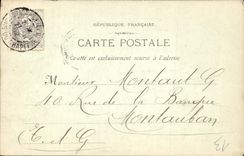 RÉPUBLIQUE FRANÇAISE
CARTE POSTALE
Ce côté est exclusivement réservé à l'adresse
Monsieur Montaut G
40 Rue de la Banque
Montauban
T. et G